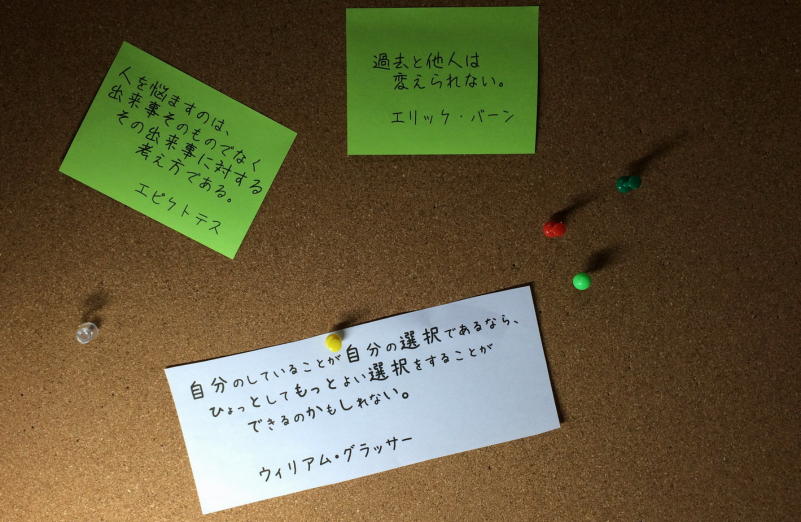 人を悩ますのは、
出来事そのものでなく
その出来事に対する
考え方である。
エピクトテス
過去と他人は
変えられない。
エリック・バーン
自分のしていることが自分の選択であるなら、
ひょっとしてもっとよい選択をすることが
できるのかもしれない。
ウィリアム・グラッサー